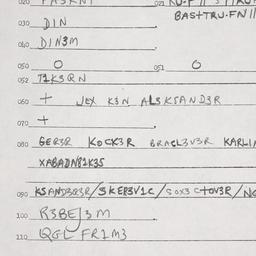 030 DIN BASTTRU.FN//
040 DIN3M
050 O 051 O
052 T1K3QN
060 + JEX K3N AL3KSAND3R
070 +
080 GER3R KOCK3R BRACL3V3R KARLI
XABADN81K3S
090 KSANDR3R/SKEP3V1C/SOX3CTOV3R/NC
100 R3BEJ3M
110 QGL FR1M3